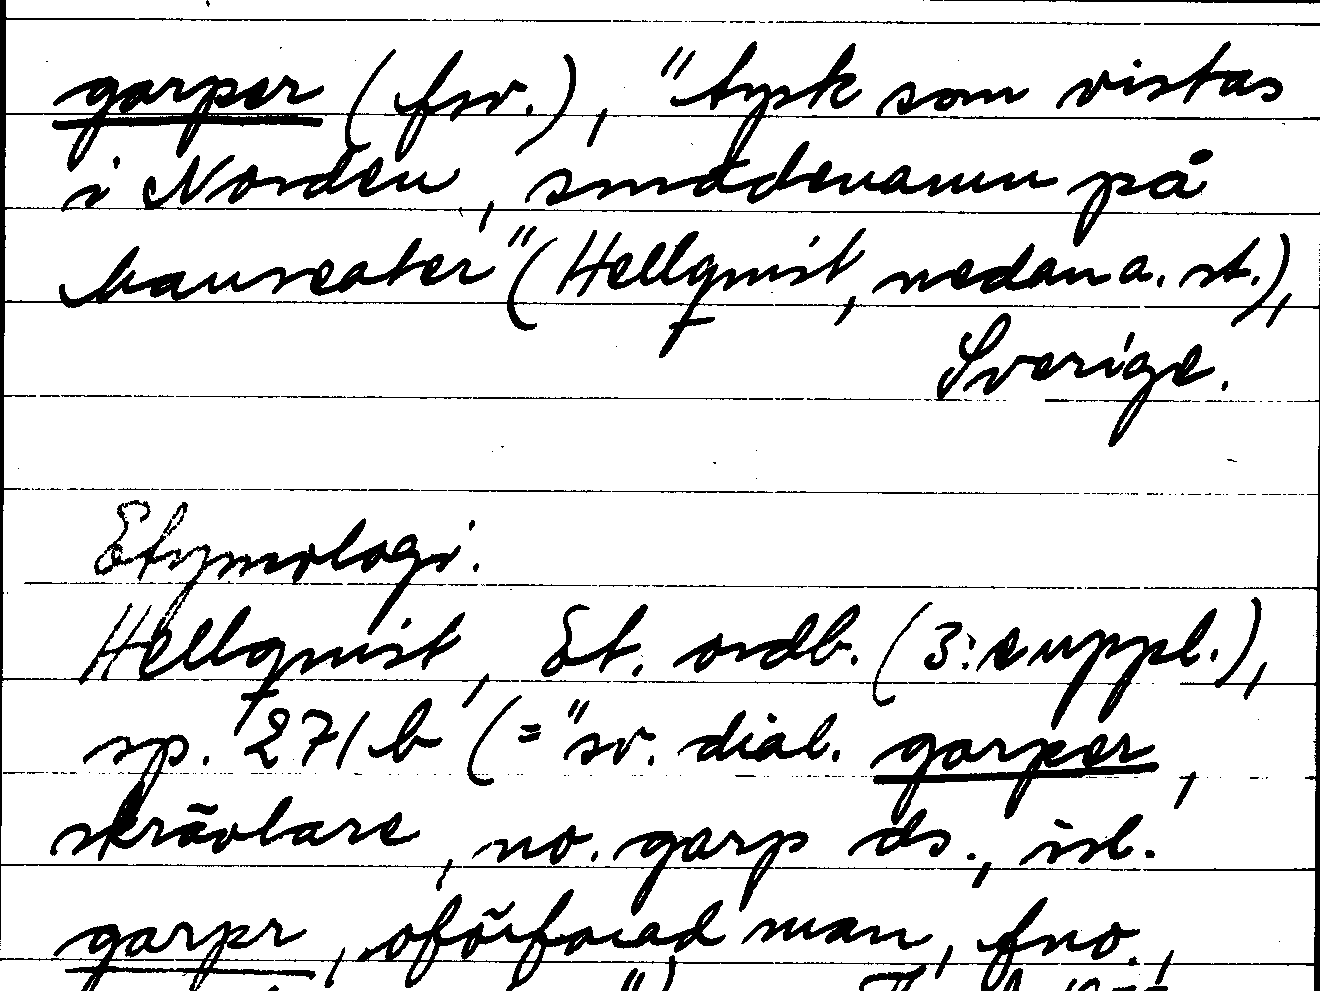 garper (fsv.), "tysk som vistas
i Norden, smädenamn på
hanseater" (Hellquist, nedan a. st.),
Sverige.
Etymologi.
Hellquist, Et. ordb. (3:e uppl.),
sp. 271 b (= "sv. dial. garper,
skrävlare, no. garp ds., isl.
garpr, oförfärad man, fno.,